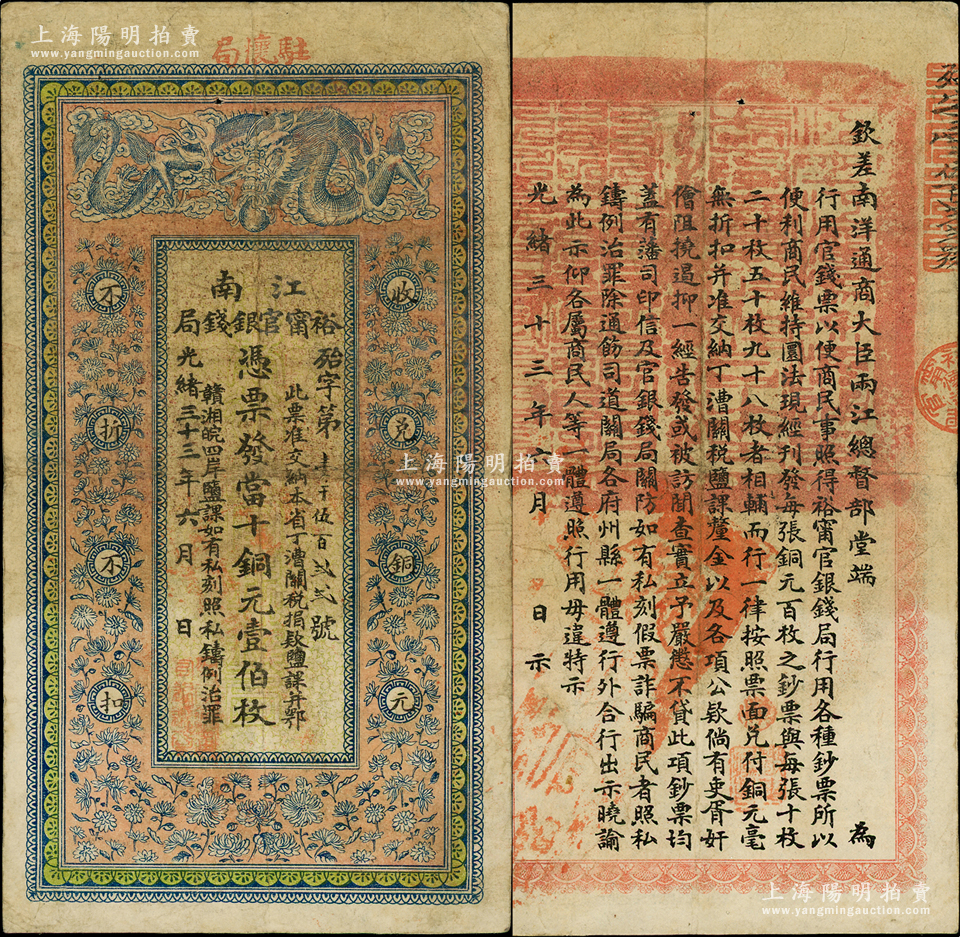 上海陽明拍賣
www.yangmingauction.com
駐瀼局
江南
裕甯官銀錢局
殆字第壹千伍百貳貳號
此票准交納本省丁漕關税捐欵鹽課并鄂
憑票發當十銅元壹伯枚
贛湘皖四岸鹽課如有私刻照私鑄例治罪
光緒三十三年六月 日
收兌銅元
不折不扣
上海陽明拍賣
www.yangmingauction.com
欽差南洋通商大臣兩江總督部堂端 為
行用官錢票以便商民事照得裕甯官銀錢局行用各種鈔票所以
便利商民維持圜法現經刊發每張銅元百枚之鈔票與每張十枚
二十枚五十枚九十八枚者相輔而行一律按照票面兌付銅元毫
無折扣并准交納丁漕關税鹽課釐金以及各項公欵倘有吏胥奸
僧阻撓遏抑一經告發或被訪聞查實立予嚴懲不貸此項鈔票均
蓋有藩司印信及官銀錢局關防如有私刻假票詐騙商民者照私
鑄例治罪除通飭司道關局各府州縣一體遵行外合行出示曉諭
為此示仰各屬商民人等一體遵照行用毋違特示
光緒三十三年六月 日示
上海陽明拍賣
www.yangmingauction.com
上海陽明拍賣
www.yangmingauction.com